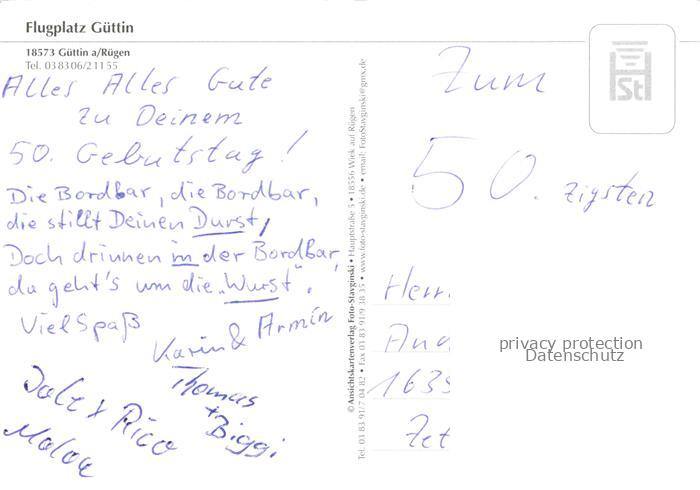 Flugplatz Güttin
18573 Güttin a/Rügen
Tel. 038306/21155
Alles Alles Gute
zu Deinem
50. Geburtstag!
Die Bordbar, die Bordbar,
die stillt Deinen Durst,
Doch drinnen in der Bordbar,
da geht's um die "Wurst".
Viel Spaß
Karin & Armin
Thomas
+ Biggi
+ Rico
© Ansichtskartenverlag Foto-Stavginski • Hauptstraße 5 • 18556 Wiek auf Rügen
Tel. 03 83 91/7 04 82 • Fax 03 83 91/9 38 35 • www.foto-stavginski.de • email: FotoStavginski@gmx.de
HSt
Zum
50. zigsten
Herr
And
1639
Zet
privacy protection
Datenschutz